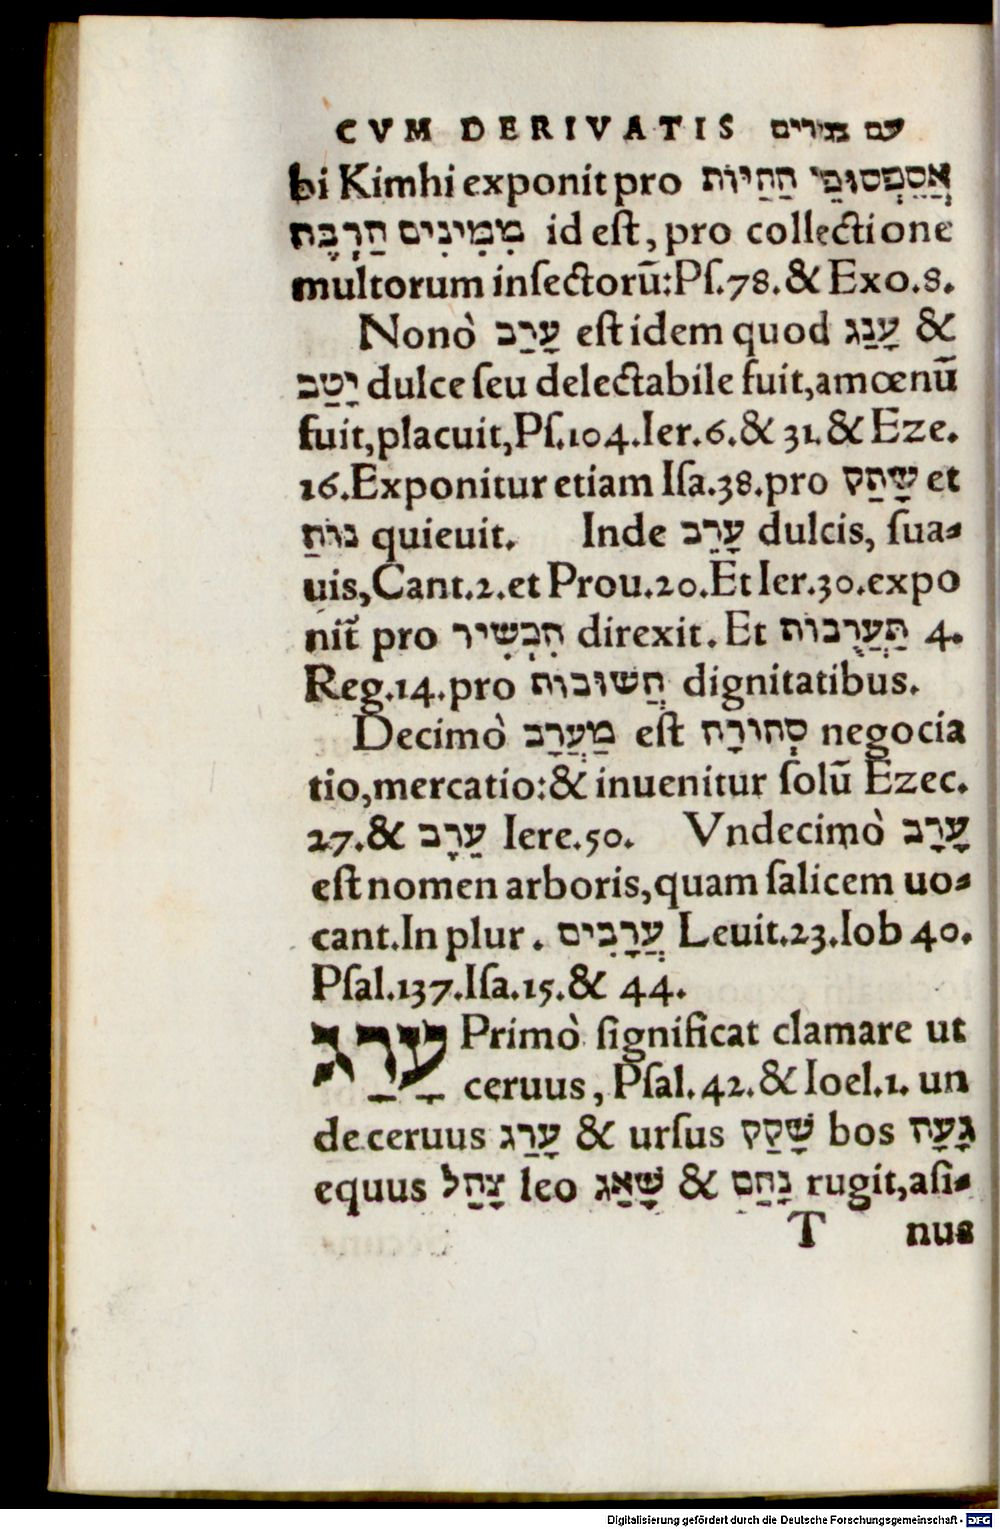 CVM DERIVATIS עם גזרים
bi Kimhi exponit pro אֲסַפְסוּפֵי הַחַיוֹת
מִמִינִים הַרְבֶּה id eſt, pro collectione
multorum inſectorũ:Pſ.78.& Exo.8.
Nonò עָרַב eſt idem quod עָנַג &
יָטַב dulce ſeu delectabile fuit,amœnũ
fuit,placuit,Pſ.104.Ier.6.& 31.& Eze.
16.Exponitur etiam Iſa.38.pro שָׁתַק et
נוּחַ quieuit. Inde עָרֵב dulcis, ſua-
uis,Cant.2.et Prou.20.Et Ier.30.expo
nit̃ pro הִכְשִׁיר direxit. Et תַּעֲרֻבוֹת 4.
Reg.14.pro חֲשׁוּבוֹת dignitatibus.
Decimò מַעֲרָב eſt סְחוֹרָה negocia
tio,mercatio:& inuenitur ſolũ Ezec.
27.& עֵרָב Iere.50. Vndecimò עָרָב
eſt nomen arboris,quam ſalicem uo-
cant.In plur. עֲרָבִים Leuit.23.Iob 40.
Pſal.137.Iſa.15.& 44.
עָרַג Primò ſignificat clamare ut
ceruus, Pſal.42.& Ioel.1. un
de ceruus עָרַג & urſus שָׁקַק bos גָּעָה
equus צָהַל leo שָׁאַג & נָהַם rugit,aſi-
T nus
Digitalisierung gefördert durch die Deutsche Forschungsgemeinschaft - DFG